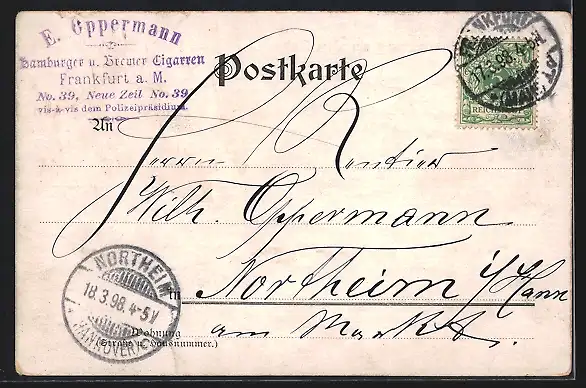 E. Oppermann
Hamburger u. Bremer Cigarren
Frankfurt a. M.
No. 39, Neue Zeil No. 39
vis-à-vis dem Polizeipräsidium.
Postkarte
FRANKFURT
17.3.98.
REICHSPOST
An
Herrn Rentier
Wilh. Oppermann
in Northeim i/Hann
am Markt.
NORTHEIM
18.3.98. 4-5V
(HANNOVER)
Wohnung
(Straße u. Hausnummer.)